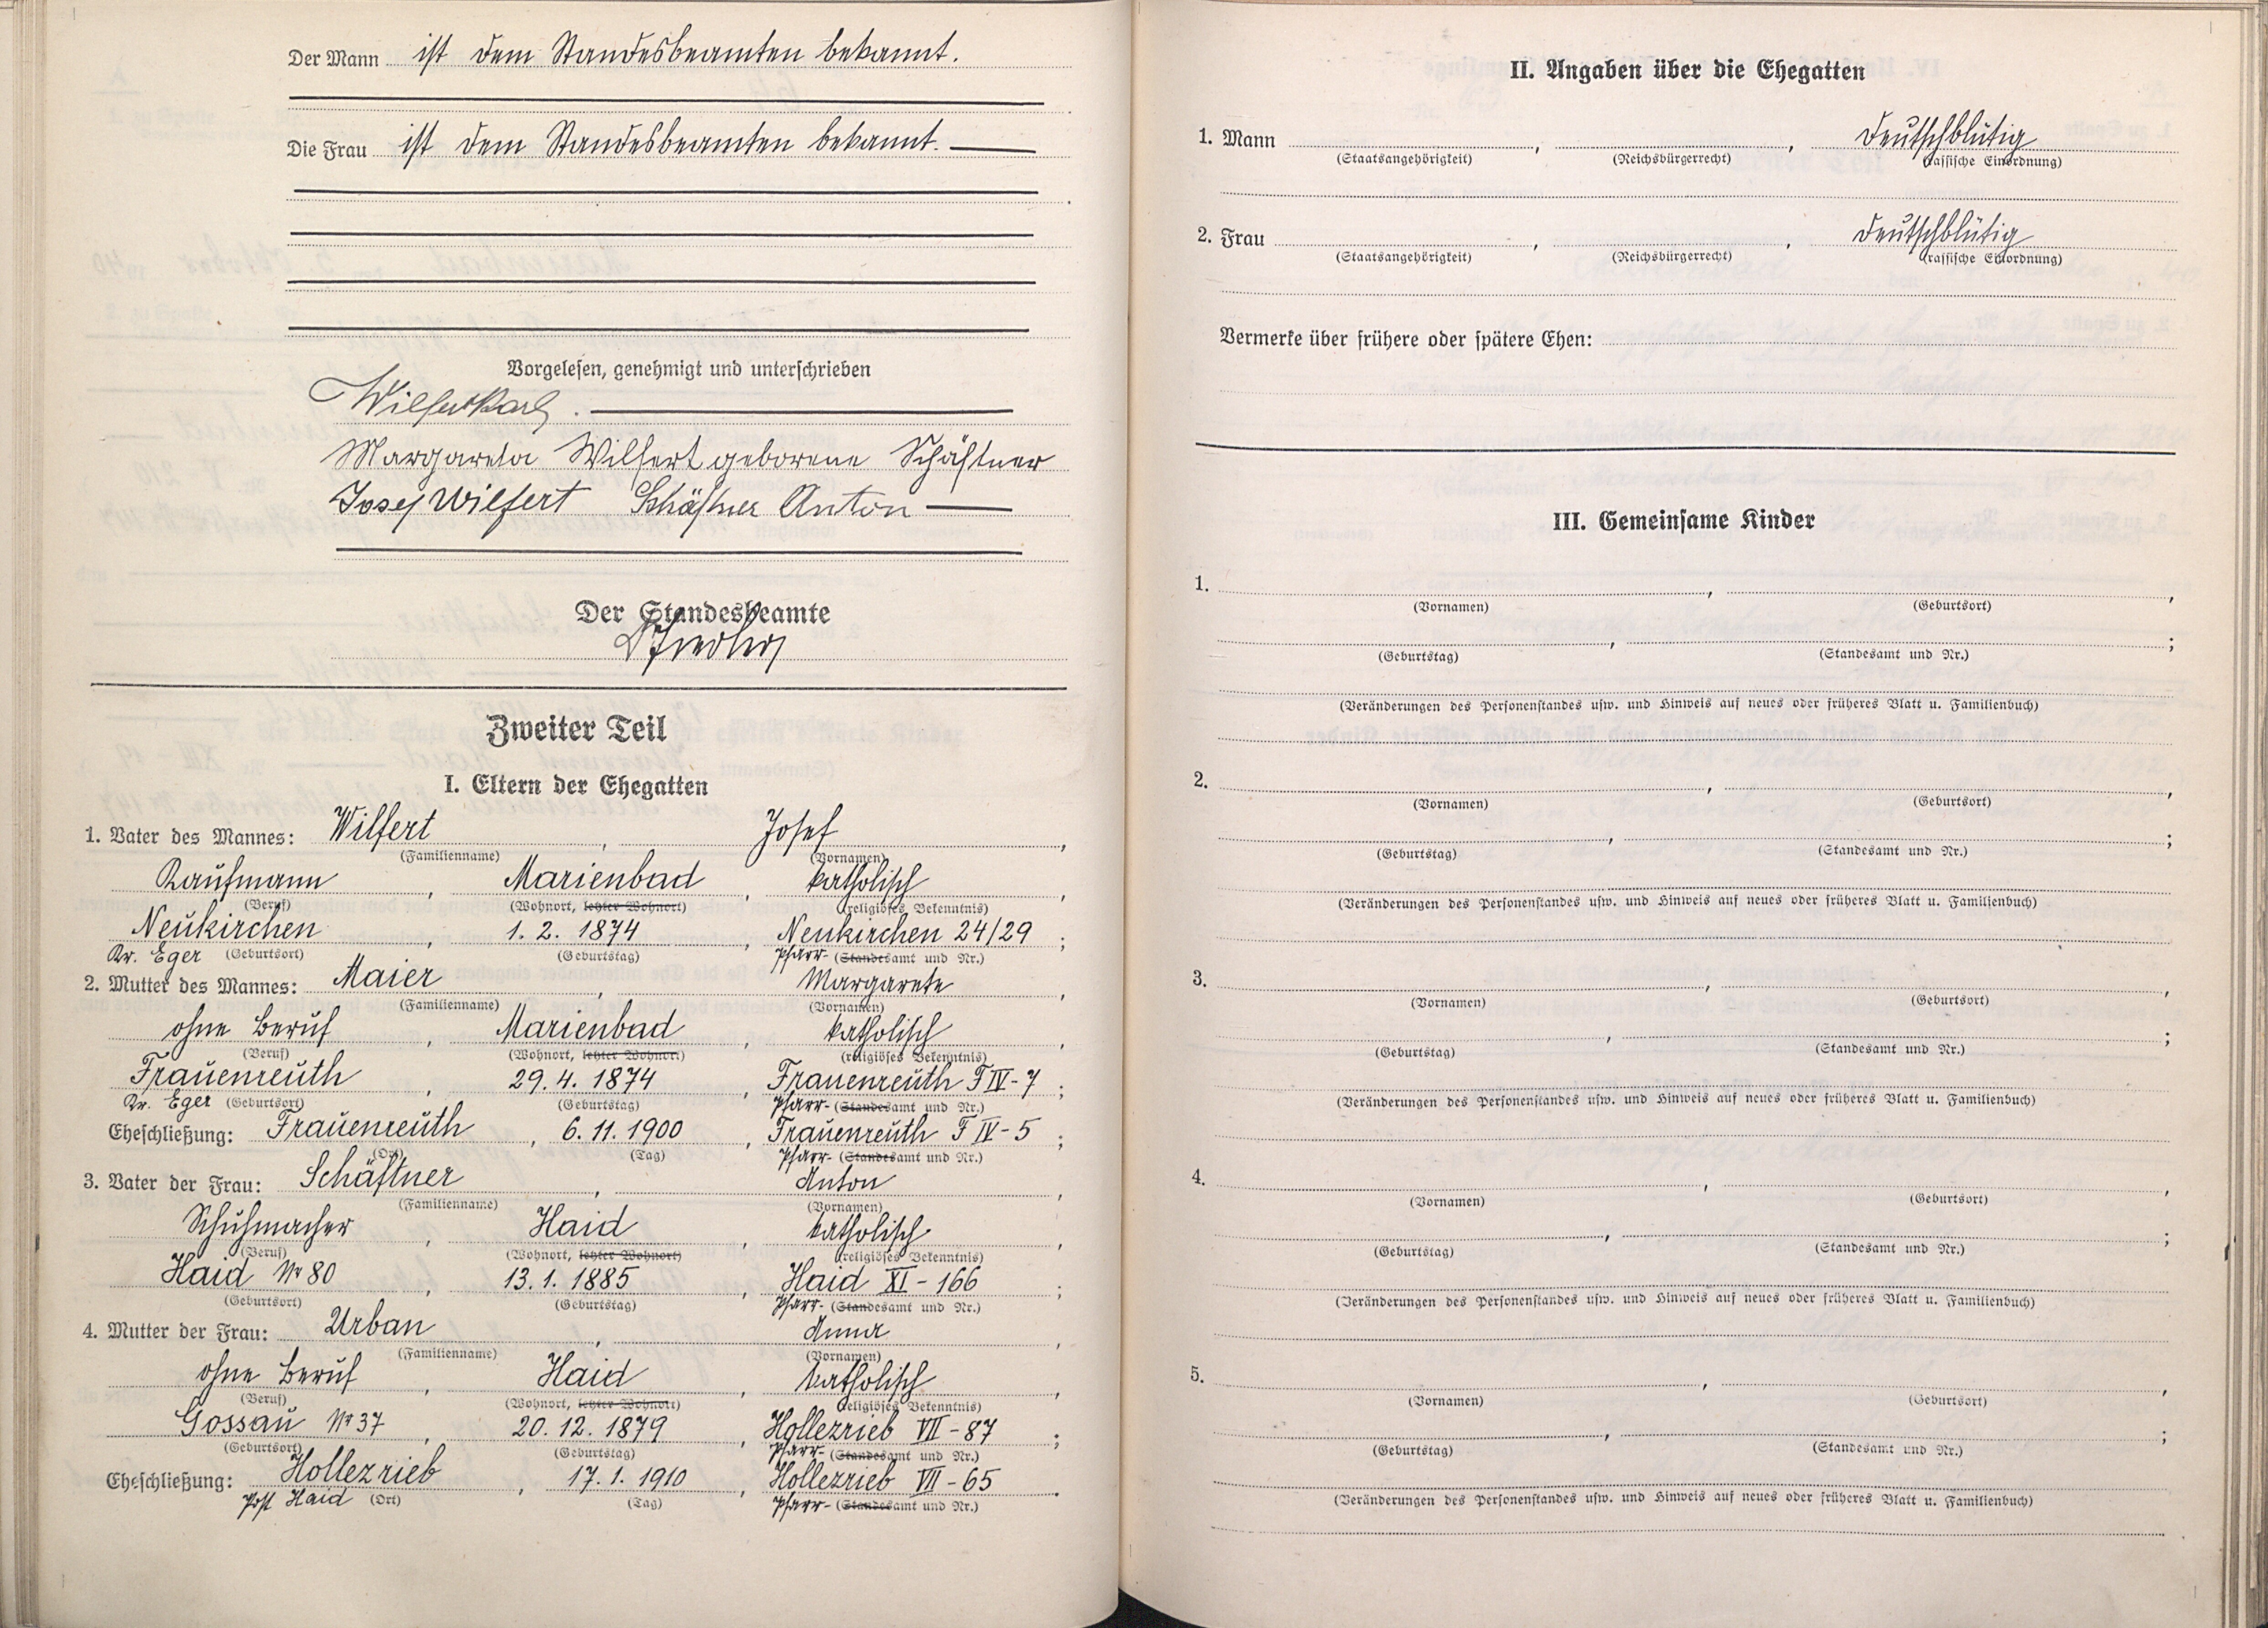 Der Mann ist dem Standesbeamten bekannt.
Die Frau ist dem Standesbeamten bekannt.
Vorgelesen, genehmigt und unterschrieben
Wilfert Karl.
Margareta Wilfert geborene Schäftner
Josef Wilfert Schäftner Anton
Der Standesbeamte
Zweiter Teil
I. Eltern der Ehegatten
1. Vater des Mannes: Wilfert, Josef,
(Familienname) (Vornamen)
Kaufmann, Marienbad, katholisch,
(Beruf) (Wohnort, letzter Wohnort) (religiöses Bekenntnis)
Neukirchen, 1. 2. 1874, Neukirchen 24/29;
Kr. Eger (Geburtsort) (Geburtstag) Pfarr- (Standesamt und Nr.)
2. Mutter des Mannes: Maier, Margarete,
(Familienname) (Vornamen)
ohne Beruf, Marienbad, katholisch,
(Beruf) (Wohnort, letzter Wohnort) (religiöses Bekenntnis)
Frauenreuth, 29. 4. 1874, Frauenreuth F IV-7;
Kr. Eger (Geburtsort) (Geburtstag) Pfarr- (Standesamt und Nr.)
Eheschließung: Frauenreuth, 6. 11. 1900, Frauenreuth F IV-5;
(Ort) (Tag) Pfarr- (Standesamt und Nr.)
3. Vater der Frau: Schäftner, Anton,
(Familienname) (Vornamen)
Schuhmacher, Haid, katholisch,
(Beruf) (Wohnort, letzter Wohnort) (religiöses Bekenntnis)
Haid Nr 80, 13. 1. 1885, Haid XI - 166;
(Geburtsort) (Geburtstag) Pfarr- (Standesamt und Nr.)
4. Mutter der Frau: Urban, Anna,
(Familienname) (Vornamen)
ohne Beruf, Haid, katholisch,
(Beruf) (Wohnort, letzter Wohnort) (religiöses Bekenntnis)
Gossau Nr 37, 20. 12. 1879, Hollezrieb VII - 87;
(Geburtsort) (Geburtstag) Pfarr- (Standesamt und Nr.)
Eheschließung: Hollezrieb, 17. 1. 1910, Hollezrieb VII - 65.
Post Haid (Ort) (Tag) Pfarr- (Standesamt und Nr.)
II. Angaben über die Ehegatten
1. Mann , , deutschblütig
(Staatsangehörigkeit) (Reichsbürgerrecht) (rassische Einordnung)
2. Frau , , deutschblütig
(Staatsangehörigkeit) (Reichsbürgerrecht) (rassische Einordnung)
Vermerke über frühere oder spätere Ehen:
III. Gemeinsame Kinder
1. , ,
(Vornamen) (Geburtsort)
, ;
(Geburtstag) (Standesamt und Nr.)
(Veränderungen des Personenstandes usw. und Hinweis auf neues oder früheres Blatt u. Familienbuch)
2. , ,
(Vornamen) (Geburtsort)
, ;
(Geburtstag) (Standesamt und Nr.)
(Veränderungen des Personenstandes usw. und Hinweis auf neues oder früheres Blatt u. Familienbuch)
3. , ,
(Vornamen) (Geburtsort)
, ;
(Geburtstag) (Standesamt und Nr.)
(Veränderungen des Personenstandes usw. und Hinweis auf neues oder früheres Blatt u. Familienbuch)
4. , ,
(Vornamen) (Geburtsort)
, ;
(Geburtstag) (Standesamt und Nr.)
(Veränderungen des Personenstandes usw. und Hinweis auf neues oder früheres Blatt u. Familienbuch)
5. , ,
(Vornamen) (Geburtsort)
, ;
(Geburtstag) (Standesamt und Nr.)
(Veränderungen des Personenstandes usw. und Hinweis auf neues oder früheres Blatt u. Familienbuch)